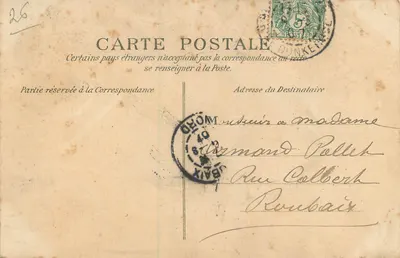 26
CARTE POSTALE
Certains pays étrangers n'acceptant pas la correspondance au recto
se renseigner à la Poste.
Partie réservée à la Correspondance
Adresse du Destinataire
DUNKERQUE
Monsieur & madame
Armand Pollet
Rue Colbert
Roubaix
ROUBAIX
NORD